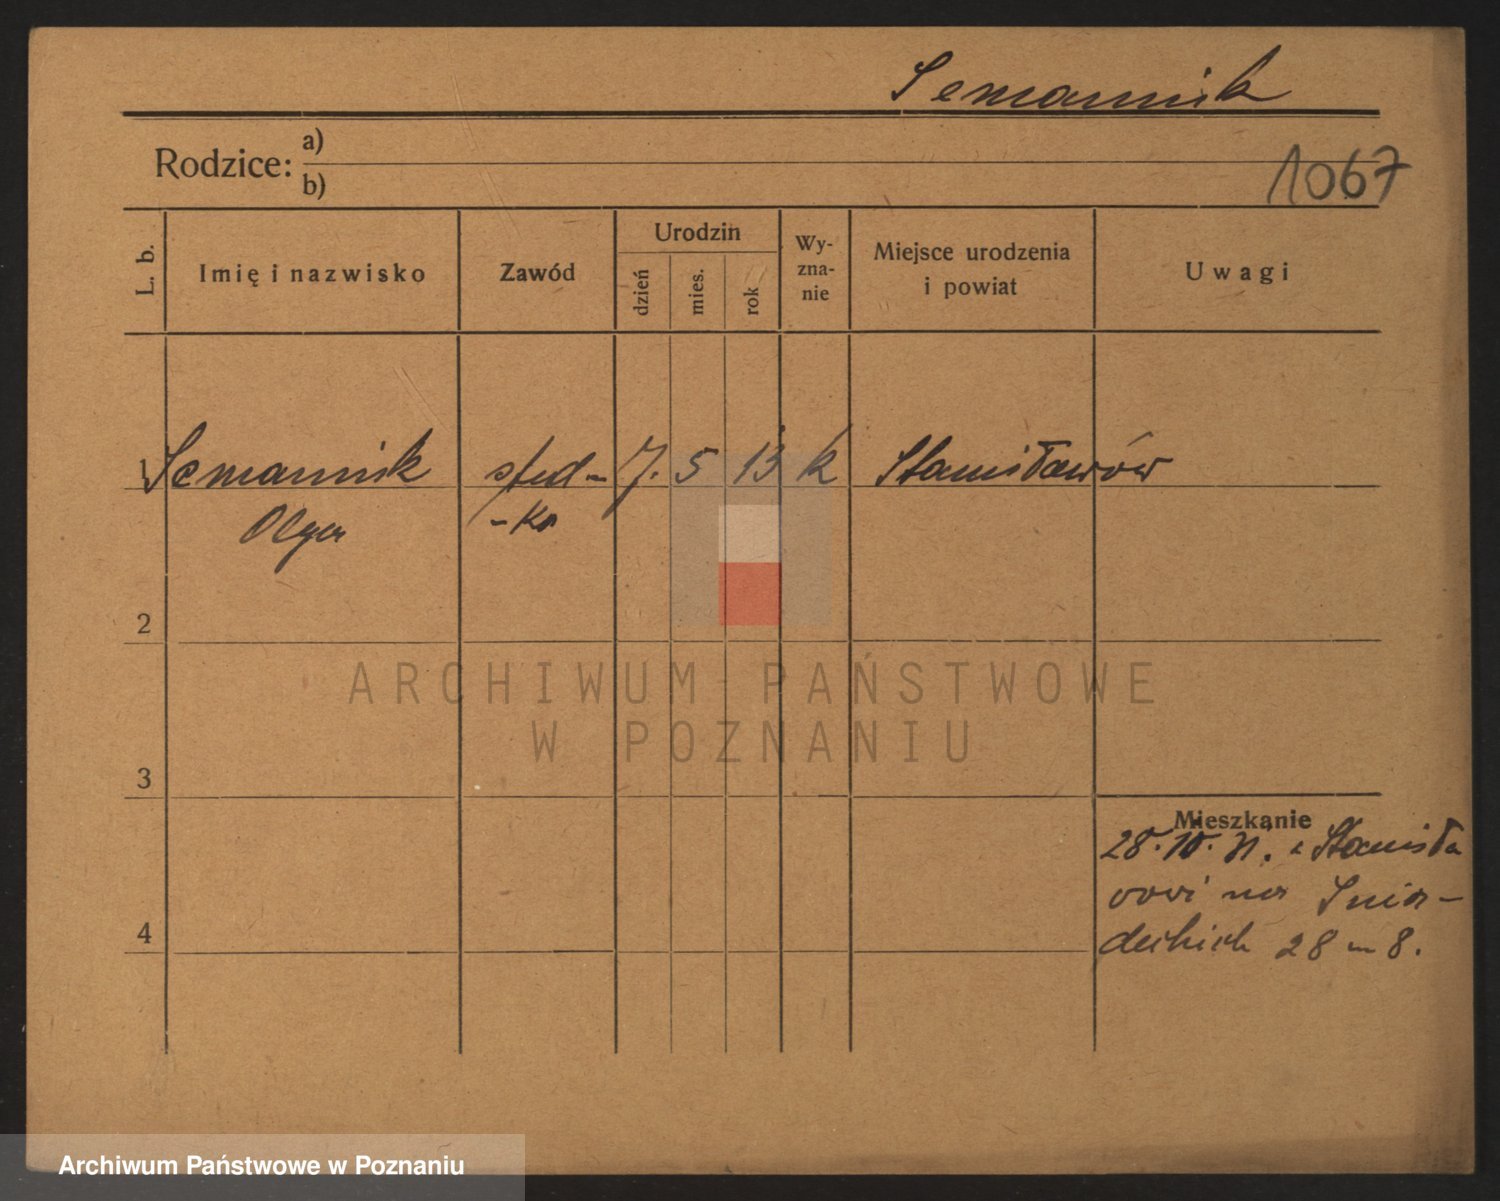 Semannik
Rodzice: a)
b)
1067
L. b.
Imię i nazwisko
Zawód
Urodzin
dzień
mies.
rok
Wy-
zna-
nie
Miejsce urodzenia
i powiat
Uwagi
1 Semannik stud- 7. 5 13 k Stanisławów
Olga -ka
2
ARCHIWUM PAŃSTWOWE
W POZNANIU
3
Mieszkanie
28.10.31. z Stanisła
wowa na Śnia-
deckich 28 m 8.
4
Archiwum Państwowe w Poznaniu